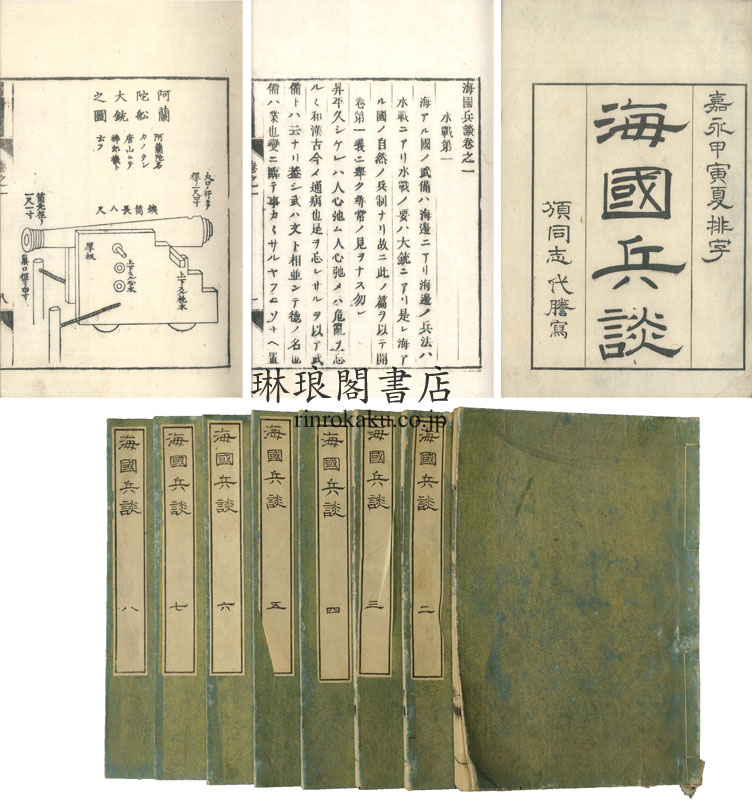 嘉永甲寅夏排字
海國兵談
頒同志代謄寫
海國兵談卷之一
水戰第一
海アル國ノ武備ハ海邊ニアリ海邊ノ兵法ハ
水戰ニアリ水戰ノ要ハ大銃ニアリ是レ海ア
ル國ノ自然ノ兵制ナリ故ニ此ノ篇ヲ以テ開
卷第一義ニ擧ク尋常ノ見ヲナス勿レ
昇平久シケレハ人心弛ム人心弛メハ危亂ヲ忘
ルヽ和漢古今ノ通病也是ヲ忘レサルヲ以テ武
備ト云ナリ蓋シ武ハ文ト相並ンテ德ノ名也
備ハ業也變ニ臨テ事カヽサルヤフニソナヘ置
卷之一
阿蘭
陀舩
大銃
之圖
阿蘭陀名
カノウン
唐山ニテ
佛郎機ト
云フ
鐵筒長八尺
筒先徑リ
一尺一寸
巢口徑リ四寸
厚板
上下スル心木
上下スル枕木
八
琳琅閣書店
rinrokaku.co.jp
海國兵談 二
海國兵談 三
海國兵談 四
海國兵談 五
海國兵談 六
海國兵談 七
海國兵談 八